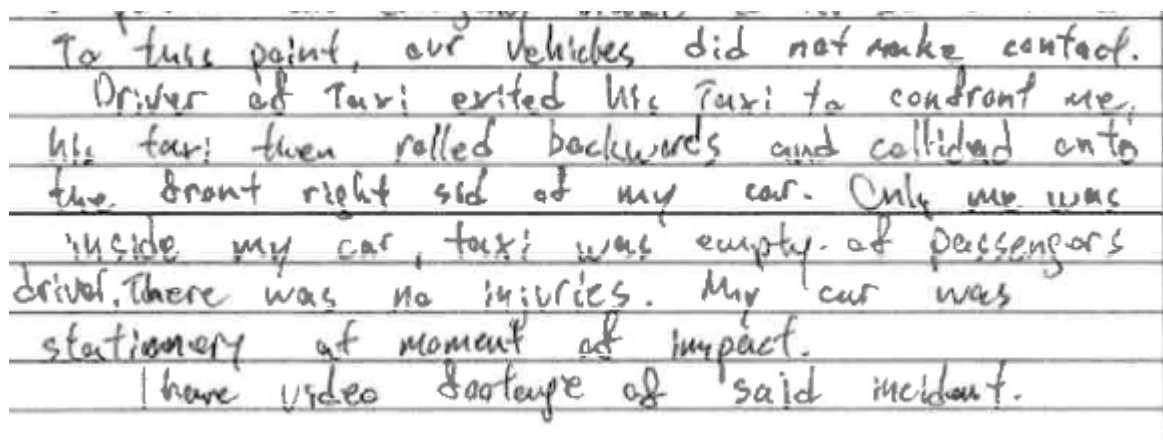 To this point, our vehicles did not make contact.
Driver of Taxi exited his Taxi to confront me,
his taxi then rolled backwards and collided onto
the front right sid of my car. Only me was
inside my car, taxi was empty of passengers
driver. There was no injuries. My car was
stationery at moment of impact.
I have video footage of said incident.